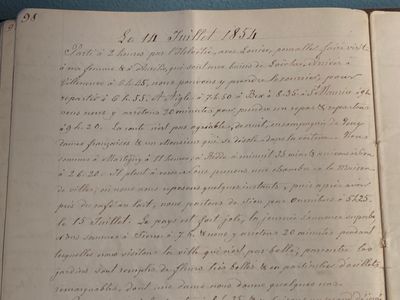 98
Le 14 Juillet 1854
Parti à 2 heures par l'Helvétie, avec Louise, pour aller faire visite
à ma femme & à qui sont aux bains de arrivés à
Villeneuve à 6h.45, nous pouvons y prendre le courrier pour
repartir à 6h.55. A Aigle à 7h.50 à Bex à 8.35 à St Maurice à 9h
nous nous y arrêtons 20 minutes pour prendre un repas & repartons
à 9h.20. La route est pas agréable, de nuit, en compagnie de
dames françaises & un monsieur qui se dans la voiture. Nous
sommes à Martigny à 11 heures, à Riddes à minuit 35 min & arrivons à Sion
à 2h.20. Il pleut à verse & nous prenons une chambre à la Maison
de ville, où nous nous reposons quelques instants, puis après avoir
pris du café au lait, nous partons de Sion par à 5h25.
le 15 Juillet. Le pays est fort joli, la journée s'annonce superbe
nous sommes à Sierre à 7h. & nous y restons 20 minutes pendant
lesquelles nous visitons la ville qui n'est pas belle; par contre les
jardins sont remplis de fleurs très belles & en particulier d'œillets
remarquables, dont une dame nous donne quelques uns.